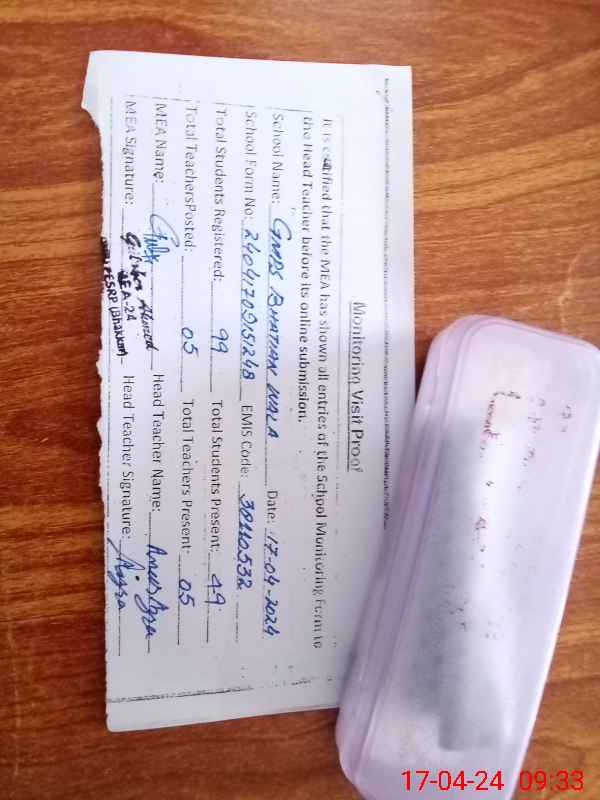 Monitoring Visit Proof
It is certified that the MEA has shown all entries of the School Monitoring Form to
the Head Teacher before its online submission.
School Name: GMPS BHATIAN WALA Date: 17-04-2024
School Form No: EMIS Code:
Total Students Registered: 99 Total Students Present: 49
Total Teachers Posted: 05 Total Teachers Present: 05
MEA Name: Head Teacher Name:
MEA Signature: Ahmed Head Teacher Signature:
MEA-24
PESRP (Bhakkar)
17-04-24 09:33